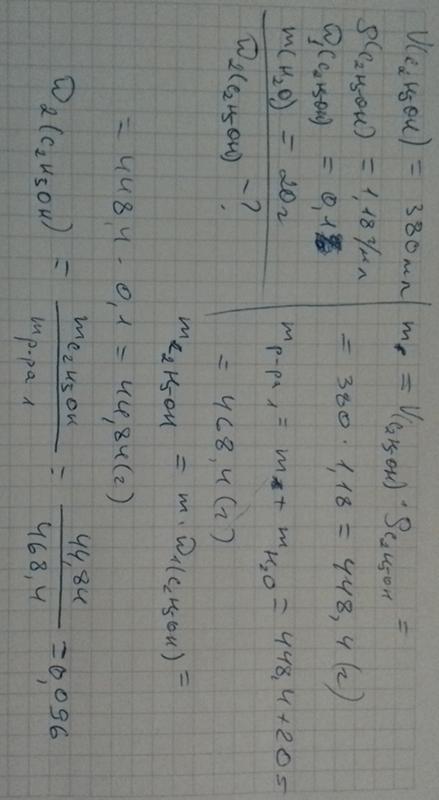 V(C₂H₅OH) = 380 мл
ρ(C₂H₅OH) = 1,18 г/мл
ω₁(C₂H₅OH) = 0,1
m(H₂O) = 20 г
ω₂(C₂H₅OH) - ?
m = V(C₂H₅OH) · ρC₂H₅OH =
= 380 · 1,18 = 448,4 (г)
mр-ра 1 = m + mH₂O = 448,4 + 20 =
= 468,4 (г)
mC₂H₅OH = m · ω₁(C₂H₅OH) =
= 448,4 · 0,1 = 44,84 (г)
ω₂(C₂H₅OH) = mC₂H₅OH / mр-ра 1 = 44,84 / 468,4 = 0,096